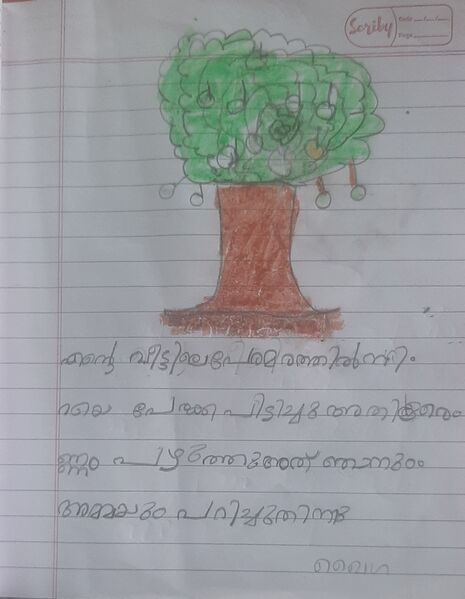 Scriby
Date
Page
എന്റെ വീട്ടിലെപേരമരത്തിൽനി
റയെ പേരക്ക പിടിച്ചു അതിൽരണ്ടെ
ണ്ണം പഴുത്തുഅത് ഞാനും
അമ്മയും പറിച്ചുതിന്നു
വൈഗ